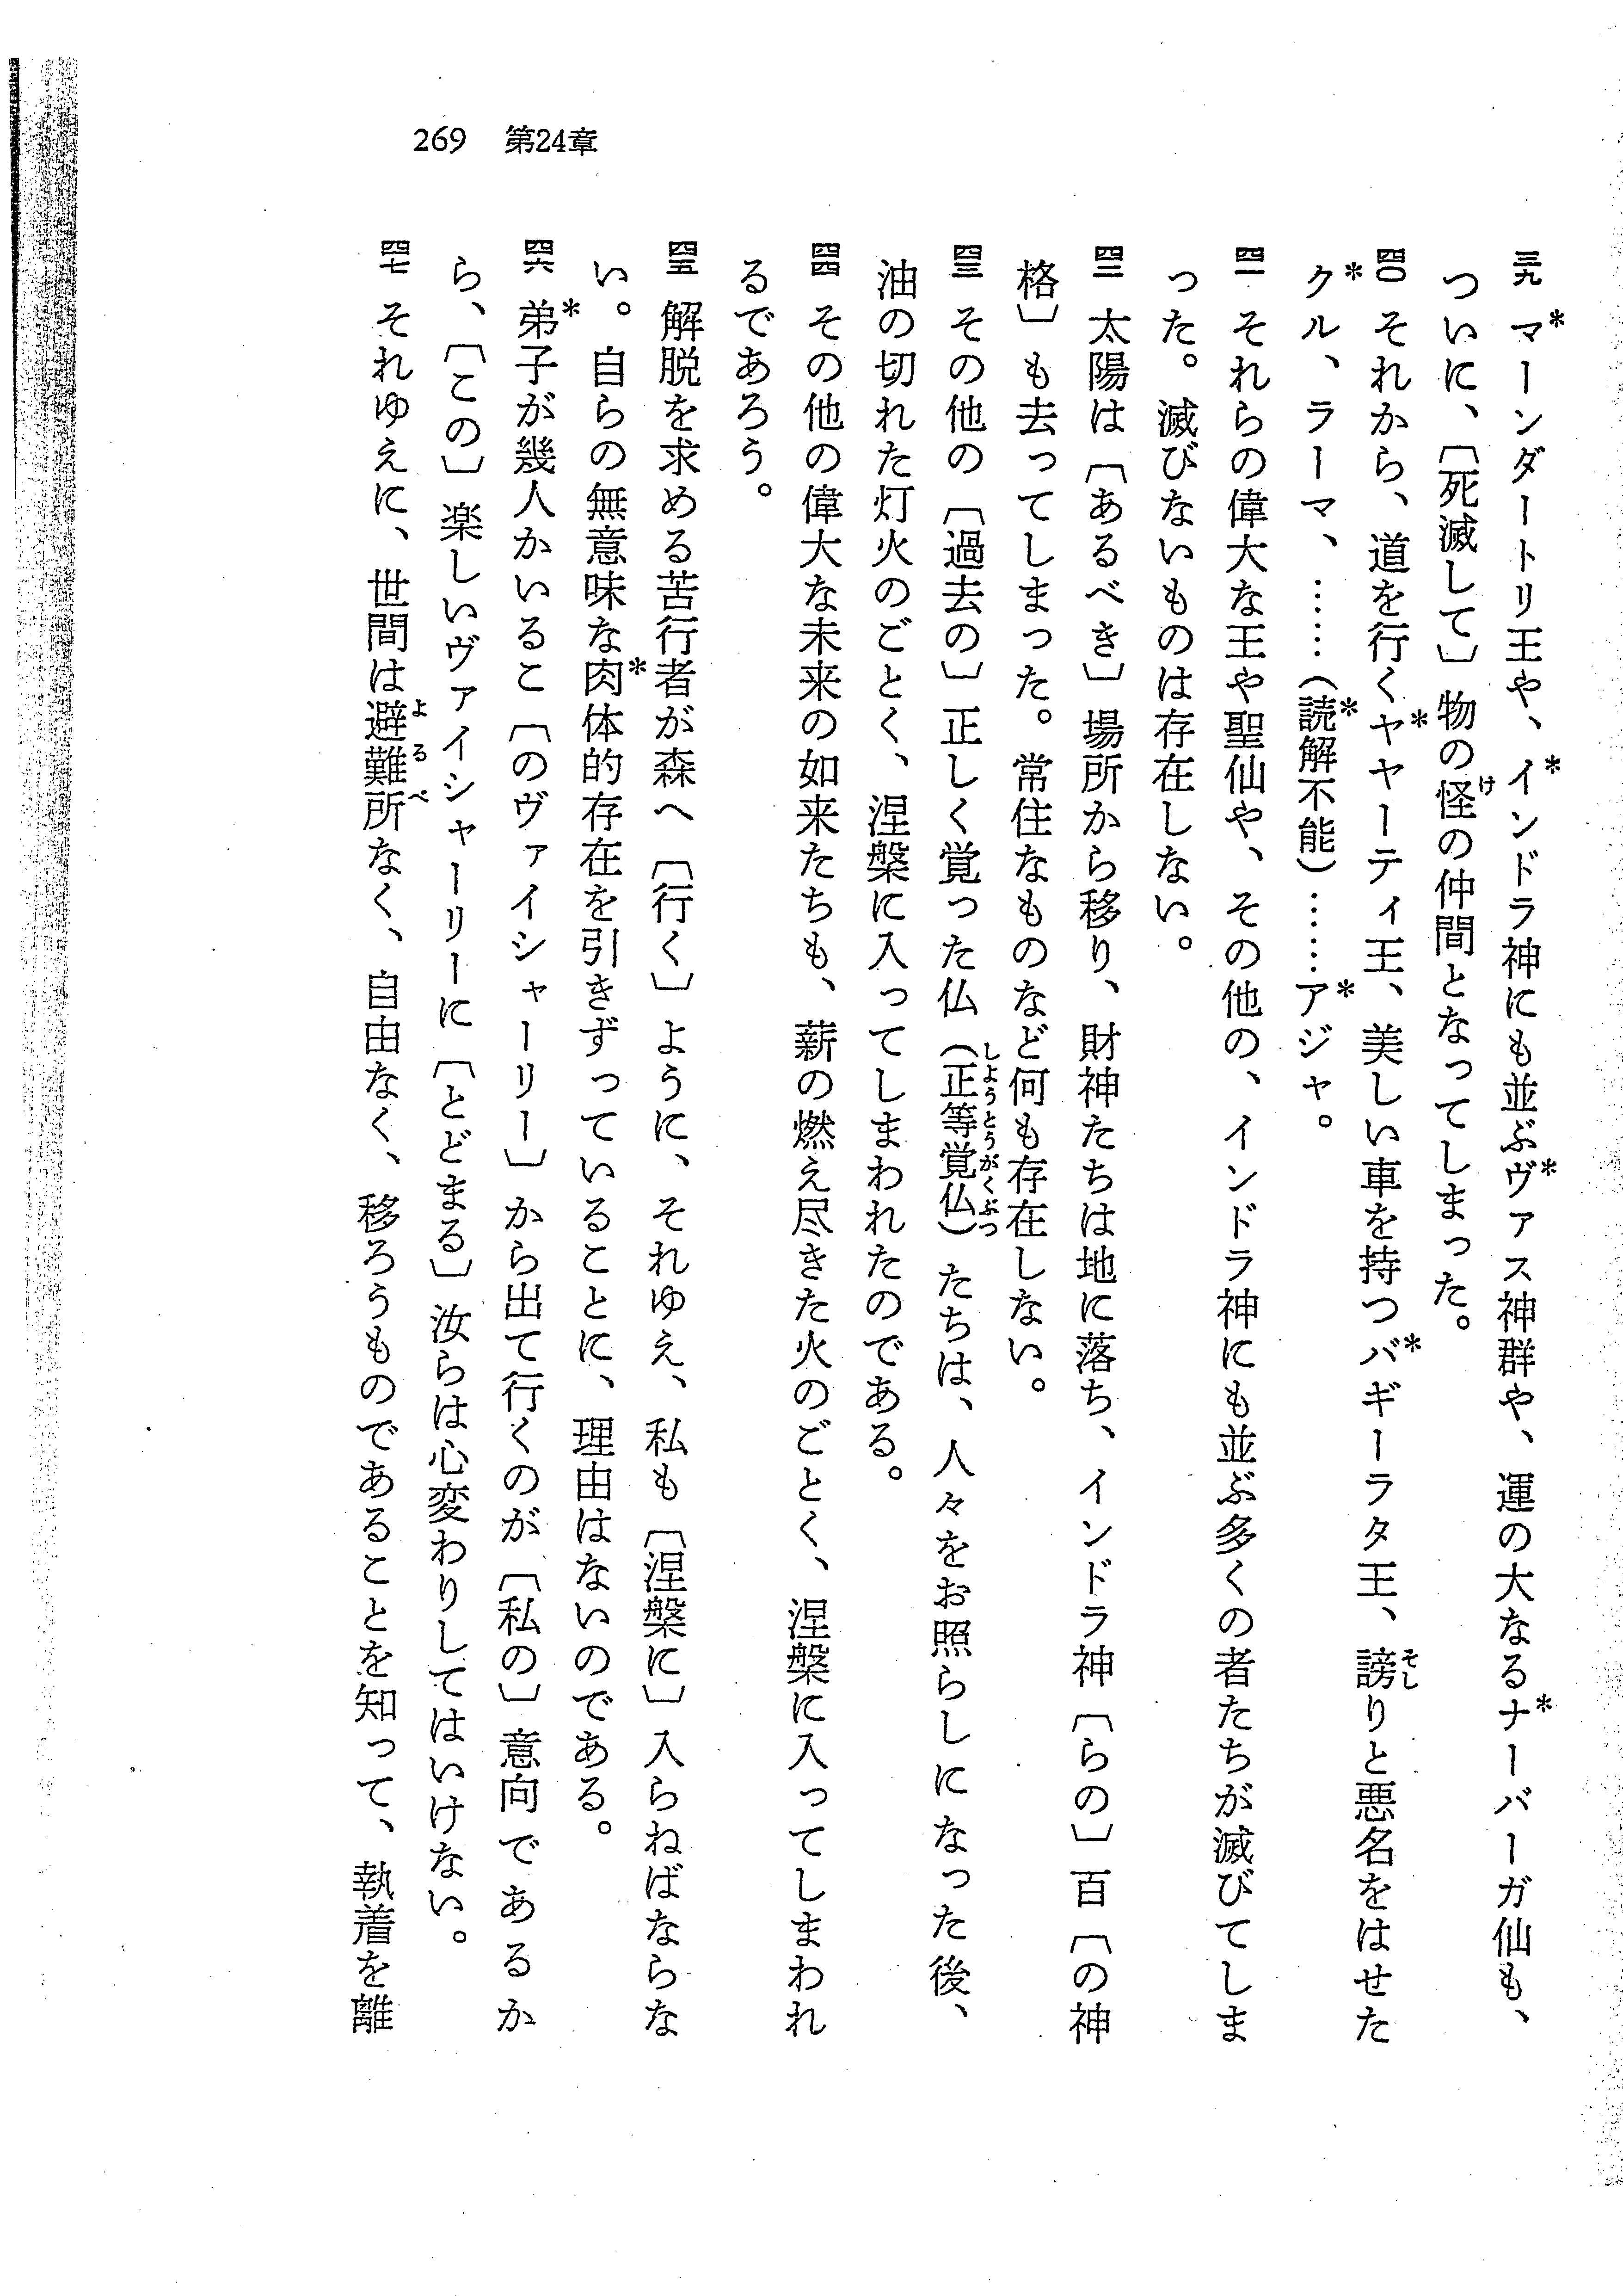 269　第24章
三九　*マーンダートリ王や、*インドラ神にも並ぶ*ヴァス神群や、運の大なる*ナーバーガ仙も、
ついに、〔死滅して〕物の怪の仲間となってしまった。
四〇　それから、道を行く*ヤヤーティ王、美しい車を持つ*バギーラタ王、謗りと悪名をはせた
*クル、ラーマ、……（*読解不能）……*アジャ。
四一　それらの偉大な王や聖仙や、その他の、インドラ神にも並ぶ多くの者たちが滅びてしま
った。滅びないものは存在しない。
四二　太陽は〔あるべき〕場所から移り、財神たちは地に落ち、インドラ神〔らの〕百〔の神
格〕も去ってしまった。常住なものなど何も存在しない。
四三　その他の〔過去の〕正しく覚った仏（正等覚仏）たちは、人々をお照らしになった後、
油の切れた灯火のごとく、涅槃に入ってしまわれたのである。
四四　その他の偉大な未来の如来たちも、薪の燃え尽きた火のごとく、涅槃に入ってしまわれ
るであろう。
四五　解脱を求める苦行者が森へ〔行く〕ように、それゆえ、私も〔涅槃に〕入らねばならな
い。自らの無意味な*肉体的存在を引きずっていることに、理由はないのである。
四六　*弟子が幾人かいるこ〔のヴァイシャーリー〕から出て行くのが〔私の〕意向であるか
ら、〔この〕楽しいヴァイシャーリーに〔とどまる〕汝らは心変わりしてはいけない。
四七　それゆえに、世間は避難所なく、自由なく、移ろうものであることを知って、執着を離
け
そし
しようとうがくぶつ
よるべ